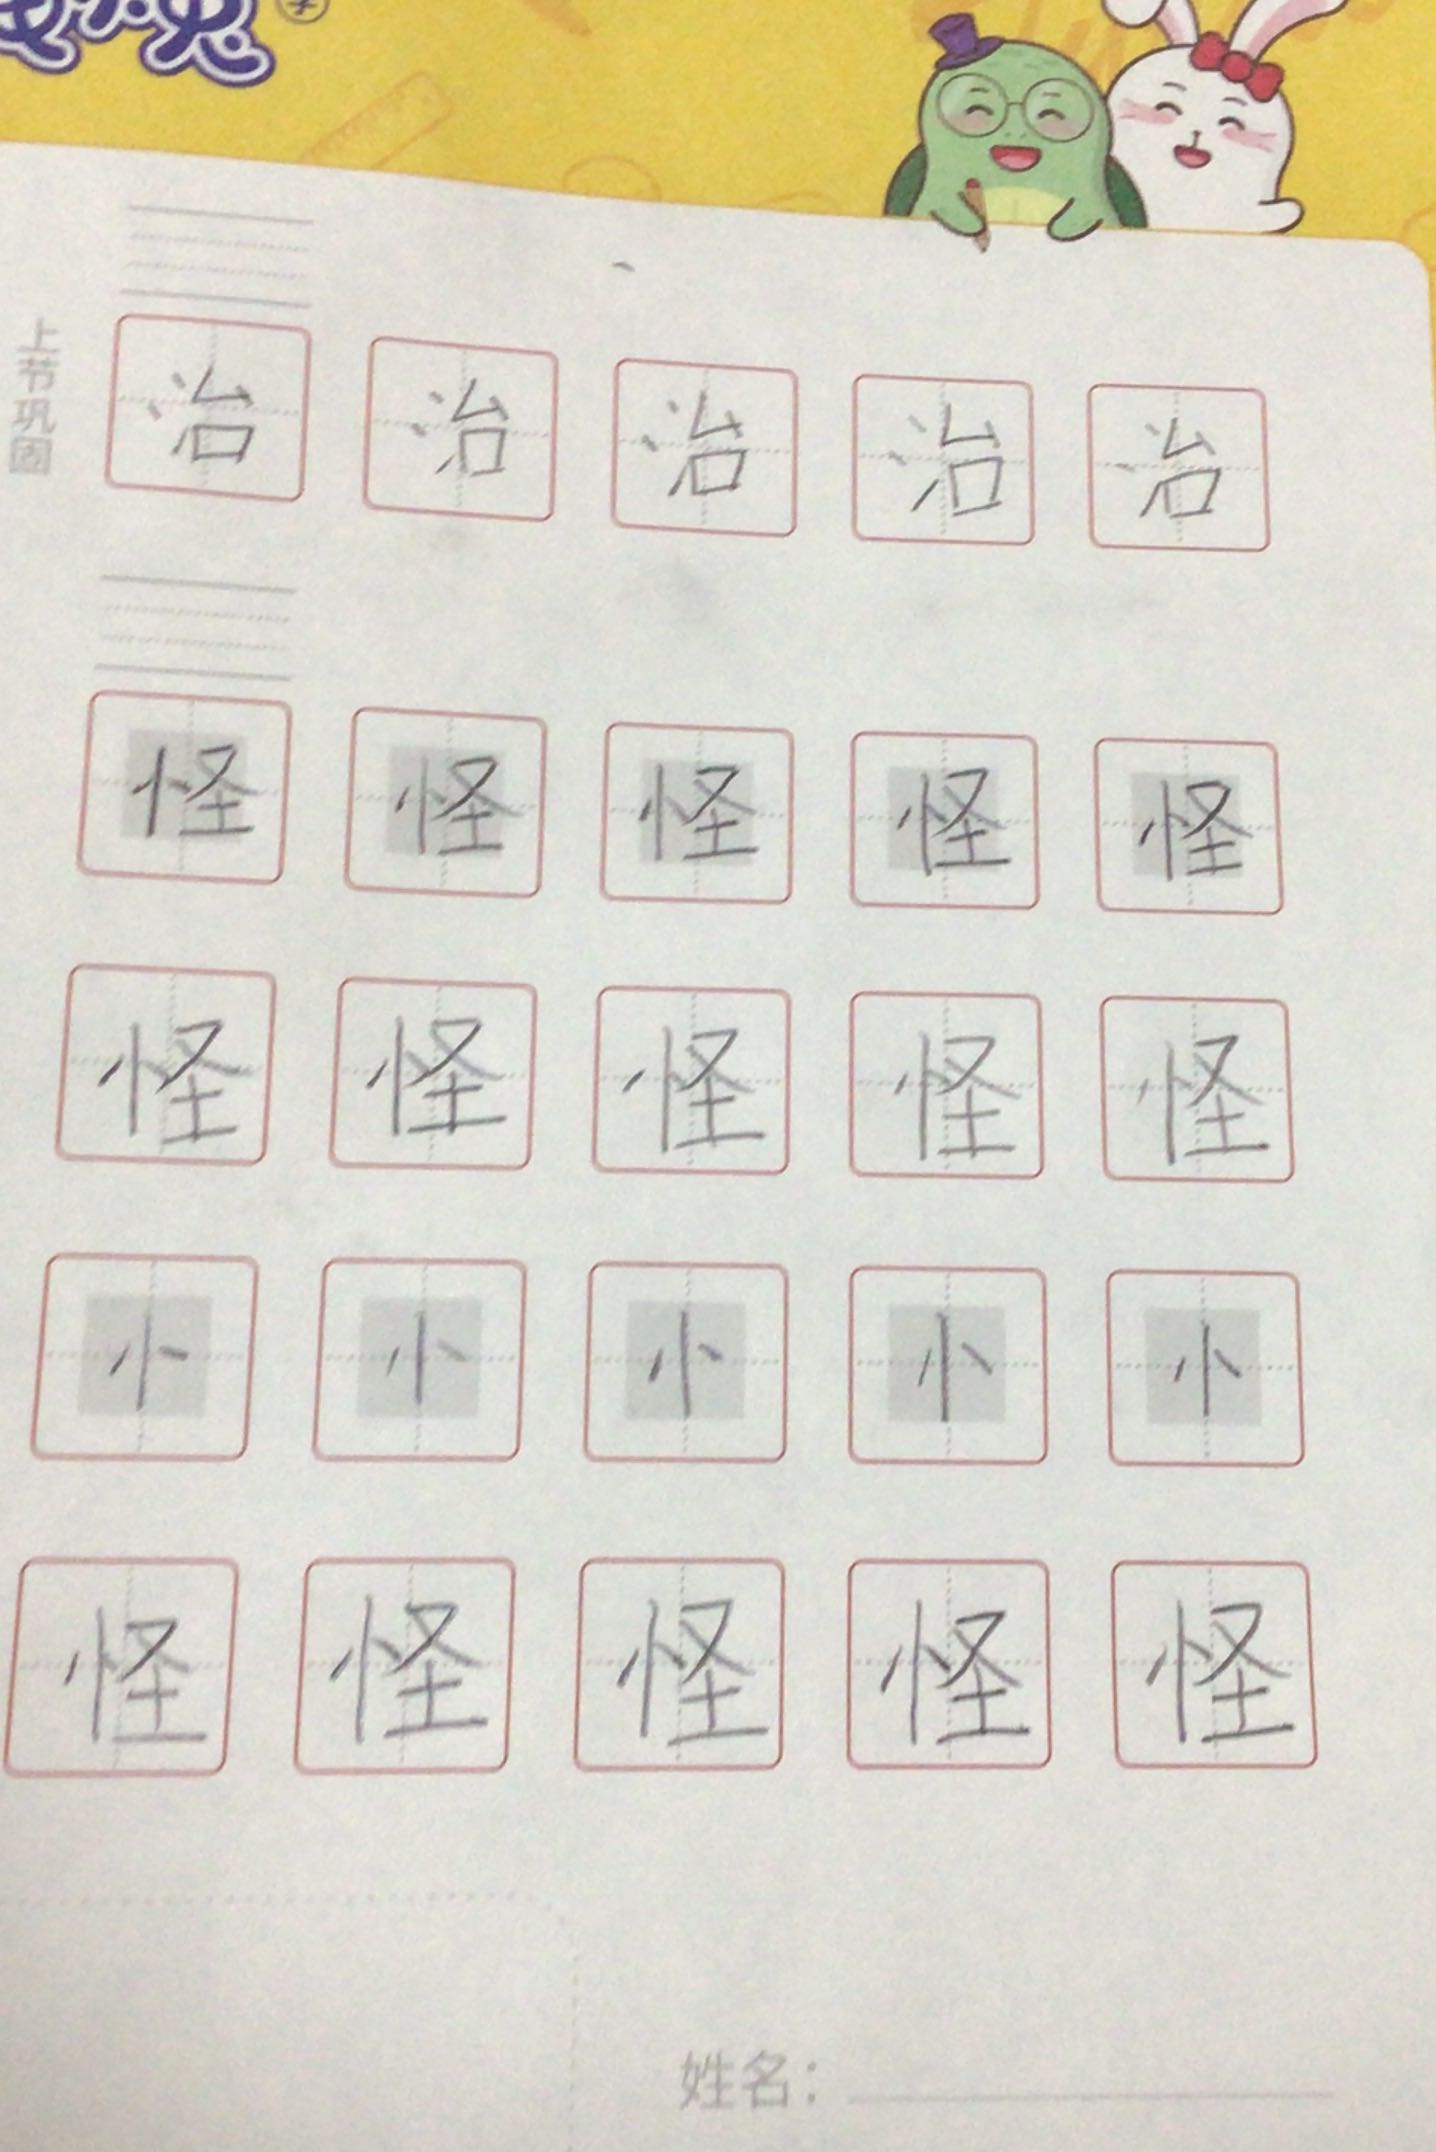 上节巩固
治 治 治 治 治
怪 怪 怪 怪 怪
怪 怪 怪 怪 怪
忄 忄 忄 忄 忄
怪 怪 怪 怪 怪
姓名：